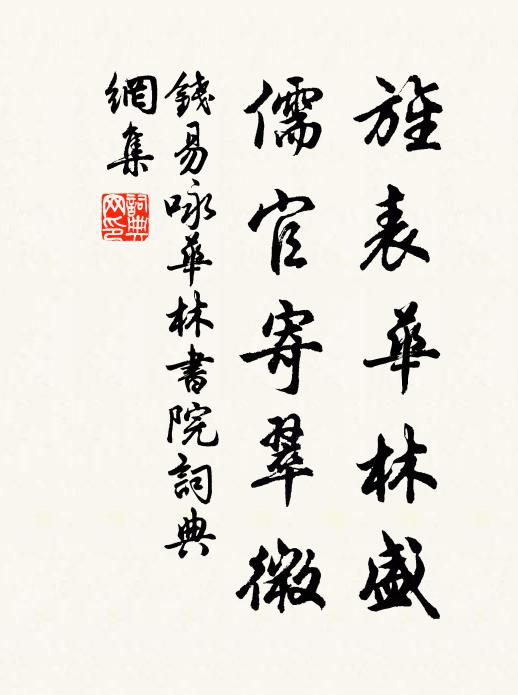 旌表華林盛
儒官寄翠微
錢易咏華林書院詞典
網集
詞典网印